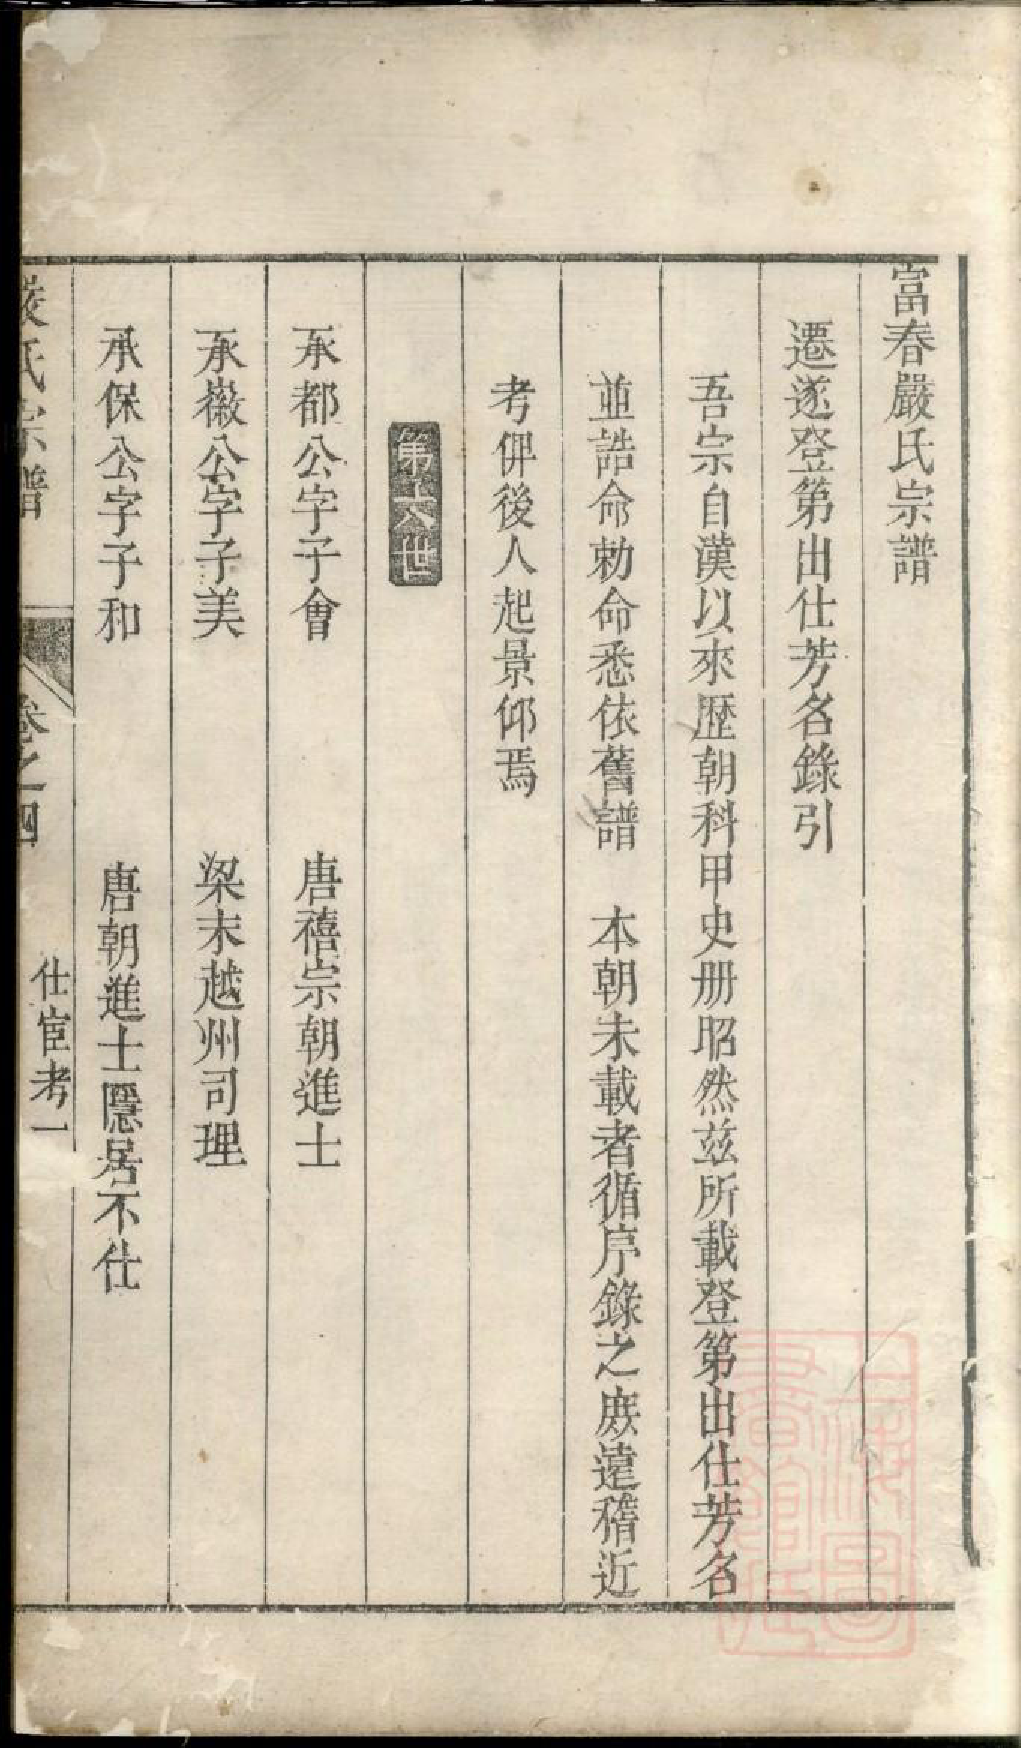 富春嚴氏宗譜
遷遂登第出仕芳名錄引
吾宗自漢以來歴朝科甲史册昭然玆所載登第出仕芳名
並誥命勅命悉依舊譜　本朝未載者循序錄之庻遠稽近
考俾後人起景仰焉
第十八世
承都公字子會　唐禧宗朝進士
承徽公字子美　梁末越州司理
承保公字子和　唐朝進士隱居不仕
嚴氏宗譜　卷之四　仕宦考一
上海圖書館藏